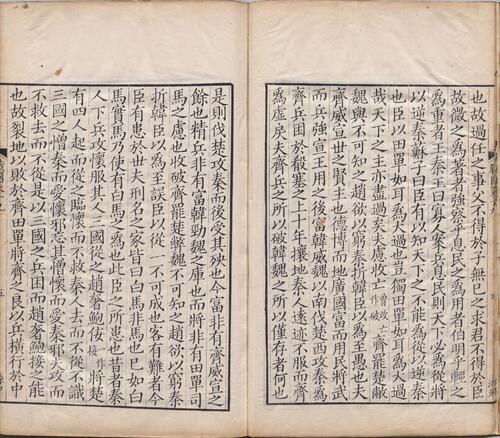 也故過任之事父不得於子無已之求君不得於臣
故微之為著者強察乎息民之為用者伯明乎輕之
為重者王秦王曰寡人案兵息民則天下必為從將
以逆秦蘇子曰臣有以知天下之不能為從以逆秦
也臣以田單如耳為大過也豈獨田單如耳為大過
哉天下之主亦盡過矣夫慮收亡曾改亡作破齊罷楚敝
魏與不可知之趙欲以窮秦折韓臣以為至愚也夫
齊威宣世之賢主也德博而地廣國富而用民將武
而兵強宣王用之後富韓威魏以南伐楚西攻秦為
齊兵困於殽塞之上十年攘地秦人遠迹不服而齊
為虛戾夫齊兵之所以破韓魏之所以僅存者何也
是則伐楚攻秦而後受其殃也今富非有齊威宣之
餘也精兵非有富韓勁魏之庫也而將非有田單司
馬之慮也收破齊罷楚弊魏不可知之趙欲以窮秦
折韓臣以為至誤臣以從一不可成也客有難者今
臣有患於世夫刑名之家皆曰白馬非馬也已如白
馬實馬乃使有白馬之為也此臣之所患也昔者秦
人下兵攻懷服其人三國從之趙奢鮑佞接作將楚
有四人起而從之臨懷而不救秦人去而不從不識
三國之憎秦而愛懷邪忘其憎懷而愛秦邪夫攻而
不救去而不從是以三國之兵困而趙奢鮑接之能
也故裂地以敗於齊田單將齊之良以兵橫行於中
五